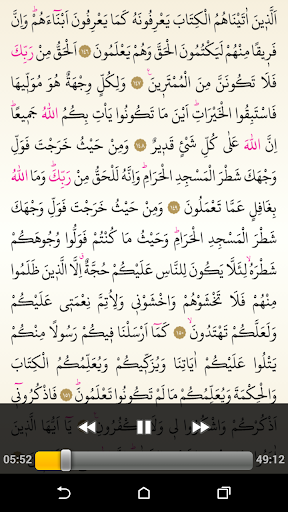 اَلَّذ۪ينَ اٰتَيْنَاهُمُ الْكِتَابَ يَعْرِفُونَهُ كَمَا يَعْرِفُونَ اَبْنَٓاءَهُمْۜ وَاِنَّ
فَر۪يقًا مِنْهُمْ لَيَكْتُمُونَ الْحَقَّ وَهُمْ يَعْلَمُونَ ﴿١٤٦﴾ اَلْحَقُّ مِنْ رَبِّكَ
فَلَا تَكُونَنَّ مِنَ الْمُمْتَر۪ينَ۟ ﴿١٤٧﴾ وَلِكُلٍّ وِجْهَةٌ هُوَ مُوَلّ۪يهَا
فَاسْتَبِقُوا الْخَيْرَاتِۜ اَيْنَ مَا تَكُونُوا يَأْتِ بِكُمُ اللّٰهُ جَم۪يعًاۜ
اِنَّ اللّٰهَ عَلٰى كُلِّ شَيْءٍ قَد۪يرٌ ﴿١٤٨﴾ وَمِنْ حَيْثُ خَرَجْتَ فَوَلِّ
وَجْهَكَ شَطْرَ الْمَسْجِدِ الْحَرَامِۜ وَاِنَّهُ لَلْحَقُّ مِنْ رَبِّكَۜ وَمَا اللّٰهُ
بِغَافِلٍ عَمَّا تَعْمَلُونَ ﴿١٤٩﴾ وَمِنْ حَيْثُ خَرَجْتَ فَوَلِّ وَجْهَكَ
شَطْرَ الْمَسْجِدِ الْحَرَامِۜ وَحَيْثُ مَا كُنْتُمْ فَوَلُّوا وُجُوهَكُمْ
شَطْرَهُۙ لِئَلَّا يَكُونَ لِلنَّاسِ عَلَيْكُمْ حُجَّةٌۗ اِلَّا الَّذ۪ينَ ظَلَمُوا
مِنْهُمْ فَلَا تَخْشَوْهُمْ وَاخْشَوْن۪ي وَلِاُتِمَّ نِعْمَت۪ي عَلَيْكُمْ
وَلَعَلَّكُمْ تَهْتَدُونَۙ ﴿١٥٠﴾ كَمَٓا اَرْسَلْنَا ف۪يكُمْ رَسُولًا مِنْكُمْ
يَتْلُوا عَلَيْكُمْ اٰيَاتِنَا وَيُزَكّ۪يكُمْ وَيُعَلِّمُكُمُ الْكِتَابَ
وَالْحِكْمَةَ وَيُعَلِّمُكُمْ مَا لَمْ تَكُونُوا تَعْلَمُونَۜ ﴿١٥١﴾ فَاذْكُرُون۪ٓي
اَذْكُرْكُمْ وَاشْكُرُوا ل۪ي وَلَا تَكْفُرُونِ۟ ﴿١٥٢﴾ يَٓا اَيُّهَا الَّذ۪ينَ
05:52 49:12